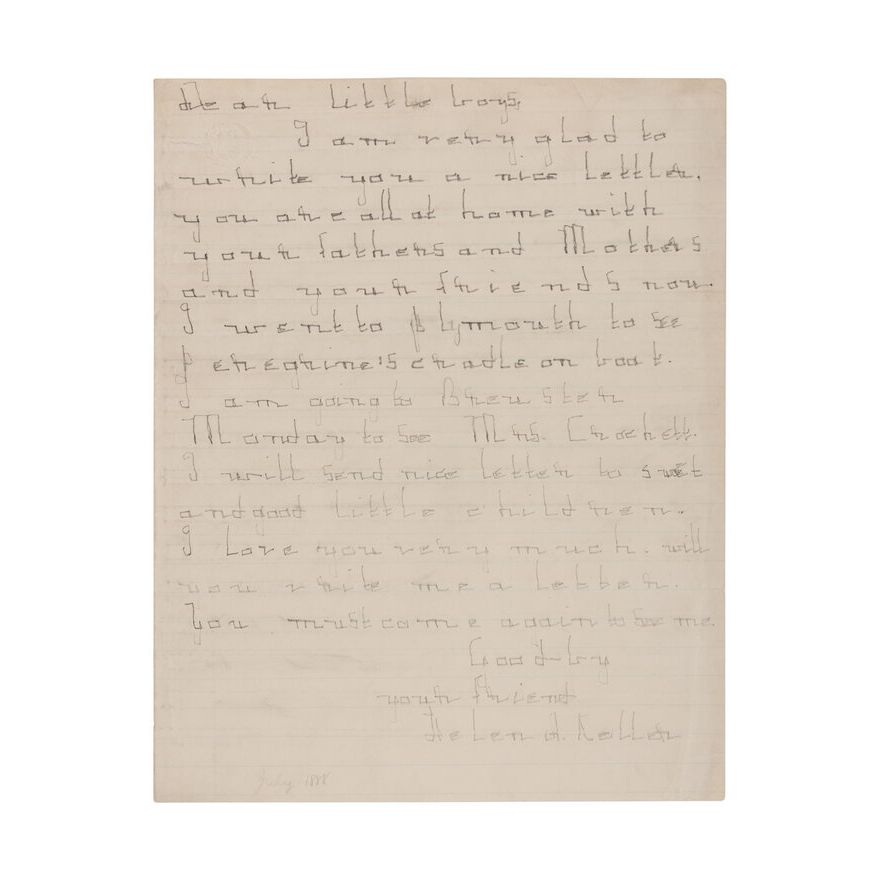 Dear little boys,
I am very glad to
write you a nice letter.
you are all at home with
your fathers and Mothers
and your friends now.
I went to plymouth to see
peregrine's cradle on boat.
I am going to Brewster
Monday to see Mrs. Crockett.
I will send nice letter to sweet
and good little children.
I love you very much. will
you write me a letter.
You must come again to see me.
Good-by
your friend
Helen A. Keller
July 1888